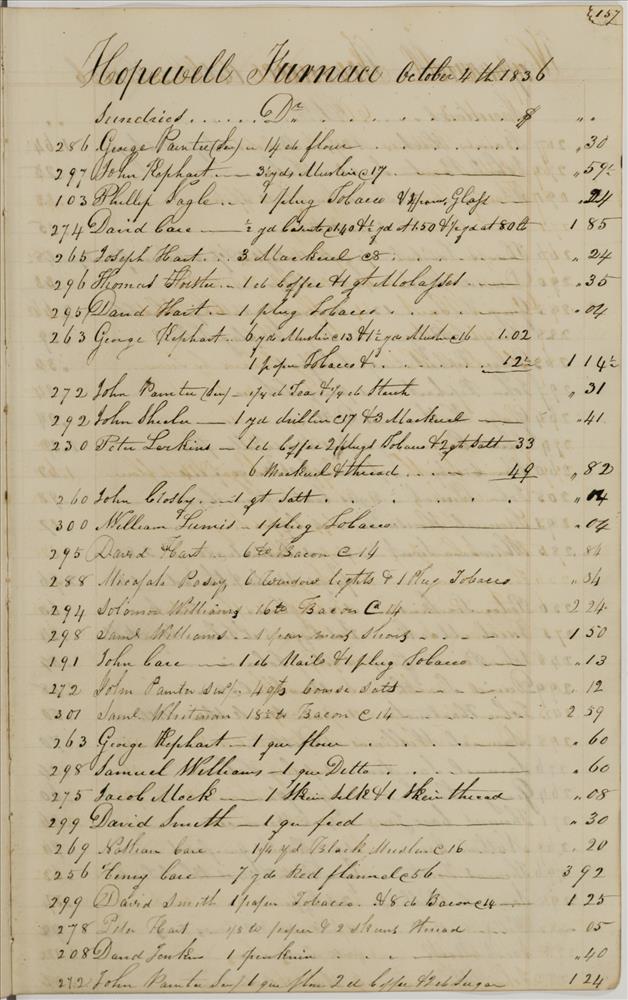 157
Hopewell Furnace October 4th 1836
Sundries . . . . . . Dr . . . . . . . . $ " "
286 George Painter (Sen) - 14 lb flour . . . . . . " 30
297 John Kephart — 3½ yds Muslin @ 17 . . — " 59½
103 Phillip Sagle — 1 plug Tobacco & Glass — " 24
274 David Care — ½ yd @ 1.40 & ½ yd at 1.50 & ½ yd at 80 ct 1 85
265 Joseph Hart . . . 3 Mackerel @ 8 . . . . . " 24
296 Thomas - 1 lb Coffee & 1 qt Molasses . . — " 35
295 David Hart — 1 plug Tobacco . . . . . " 04
263 George Kephart . . 6 yds Muslin @ 13 & 1½ yds Muslin @ 16 1.02
1 paper Tobacco & . . . . . 12½ 1 14½
272 John Painter (Sen) — ¼ lb Tea & ¼ lb Starch " 31
292 John Sheeler — 1 yd drilling @ 17 & 3 Mackerel — " 41
230 Peter Lerkins — 1 lb Coffee 2 plugs Tobacco & 2 qts Salt 33
6 Mackerel & thread . . . . — 49 " 82
260 John Crosby . — 1 qt Salt . . . . . . . " 04
300 William - 1 plug Tobacco — " 04
295 David Hart . . 6 lb Bacon @ 14 " 84
288 Micajah Posey 6 Window lights & 1 Plug Tobacco " 34
294 Solomon Williams 16 lb Bacon @ 14 . . . . 2 24
298 Saml Williams . . - 1 pair mens Shoes - - - - 1 50
191 John Care — 1 lb Nails & 1 plug Tobacco — " 13
272 John Painter Sen - 4 qts Coarse Salt — " 12
301 Saml Whitman 18½ lb Bacon @ 14 — 2 59
263 George Kephart — 1 qur flour . . . . — " 60
298 Samuel Williams - 1 qur Ditto . . . — " 60
275 Jacob Mock — 1 Skein Silk & 1 Skein thread " 08
299 David Smith — 1 qur feed — " 30
269 Nathan Care 1¼ yd Black Muslin @ 16 " 20
256 Henry Care — 7 yds Red flannel @ 56 — 3 92
299 David Smith 1 paper Tobacco & 8 lb Bacon @ 14 — 1 25
278 Peter Hart — lb pepper & 2 skeins thread — " 05
208 David Jenkins 1 penknife . . . — " 40
272 John Painter Sen 1 qur flour 2 lb Coffee & 2 lb Sugar 1 24